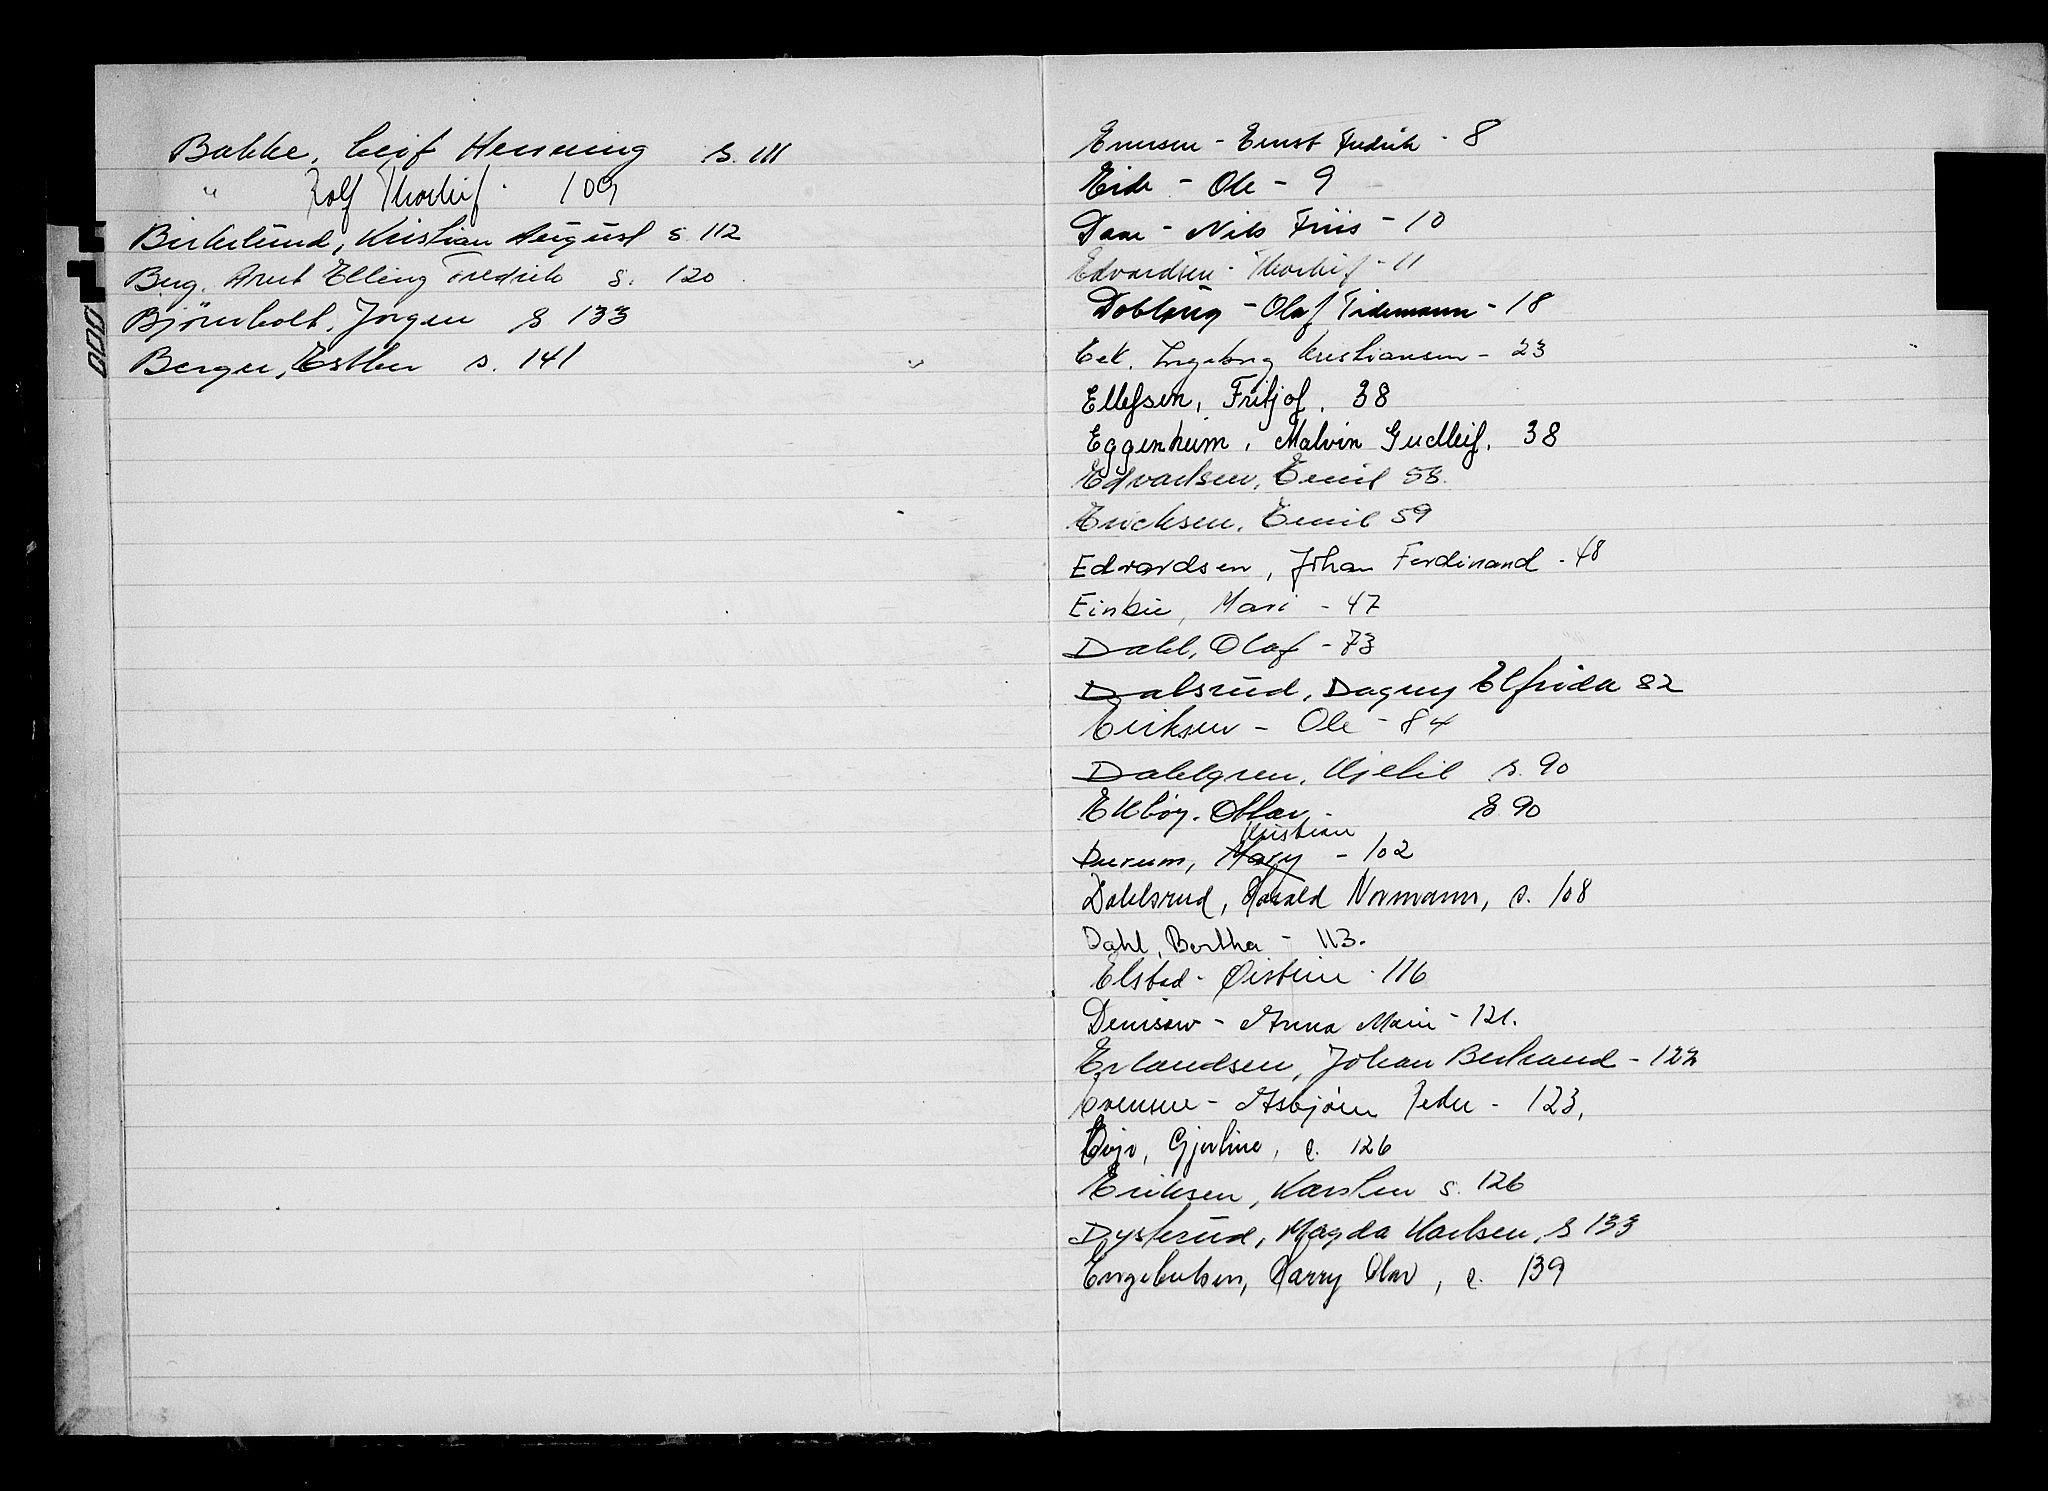 Bakke, Leif Henning s. 111
" Rolf Thorleif. 109
Birkelund, Kristian August s. 112
Berg, Arnt Elling Fredrik s. 120
Bjørnholt, Jørgen s 133
Berger, Esther s. 141
Enersen - Ernst Fredrik - 8
Eide - Ole - 9
Daae - Nils Friis - 10
Edvardsen - Thorleif - 11
Dobloug - Olaf Tidemann - 18
Eek, Ingeborg Kristiansen - 23
Ellefsen, Fritjof. 38
Eggenheim, Malvin Gudleif. 38
Edvartsen, Emil 58.
Ericksen, Emil 59
Edvardsen, Johan Ferdinand - 48
Mari - 47
Dahl, Olaf - 73
Dalsrud, Dagny Elfrida 82
Eriksen - Ole - 84
Dahlgren, Kjetil s. 90
Ottar - s 90
Kristian
Durum, Mary - 102
Dahlsrud, Harald Normann, s. 108
Dahl, Bertha - 113.
Elstad - Øistein - 116
Denisow - Anna Marie - 121.
Erlandsen, Johan Bertrand - 122
Evensen - Asbjørn Peder - 123,
Gjertine, s. 126
Eriksen, Karsten s. 126
Dysterud, Magda Karlsen, s 133
Engebretsen, Harry Olav, s. 139